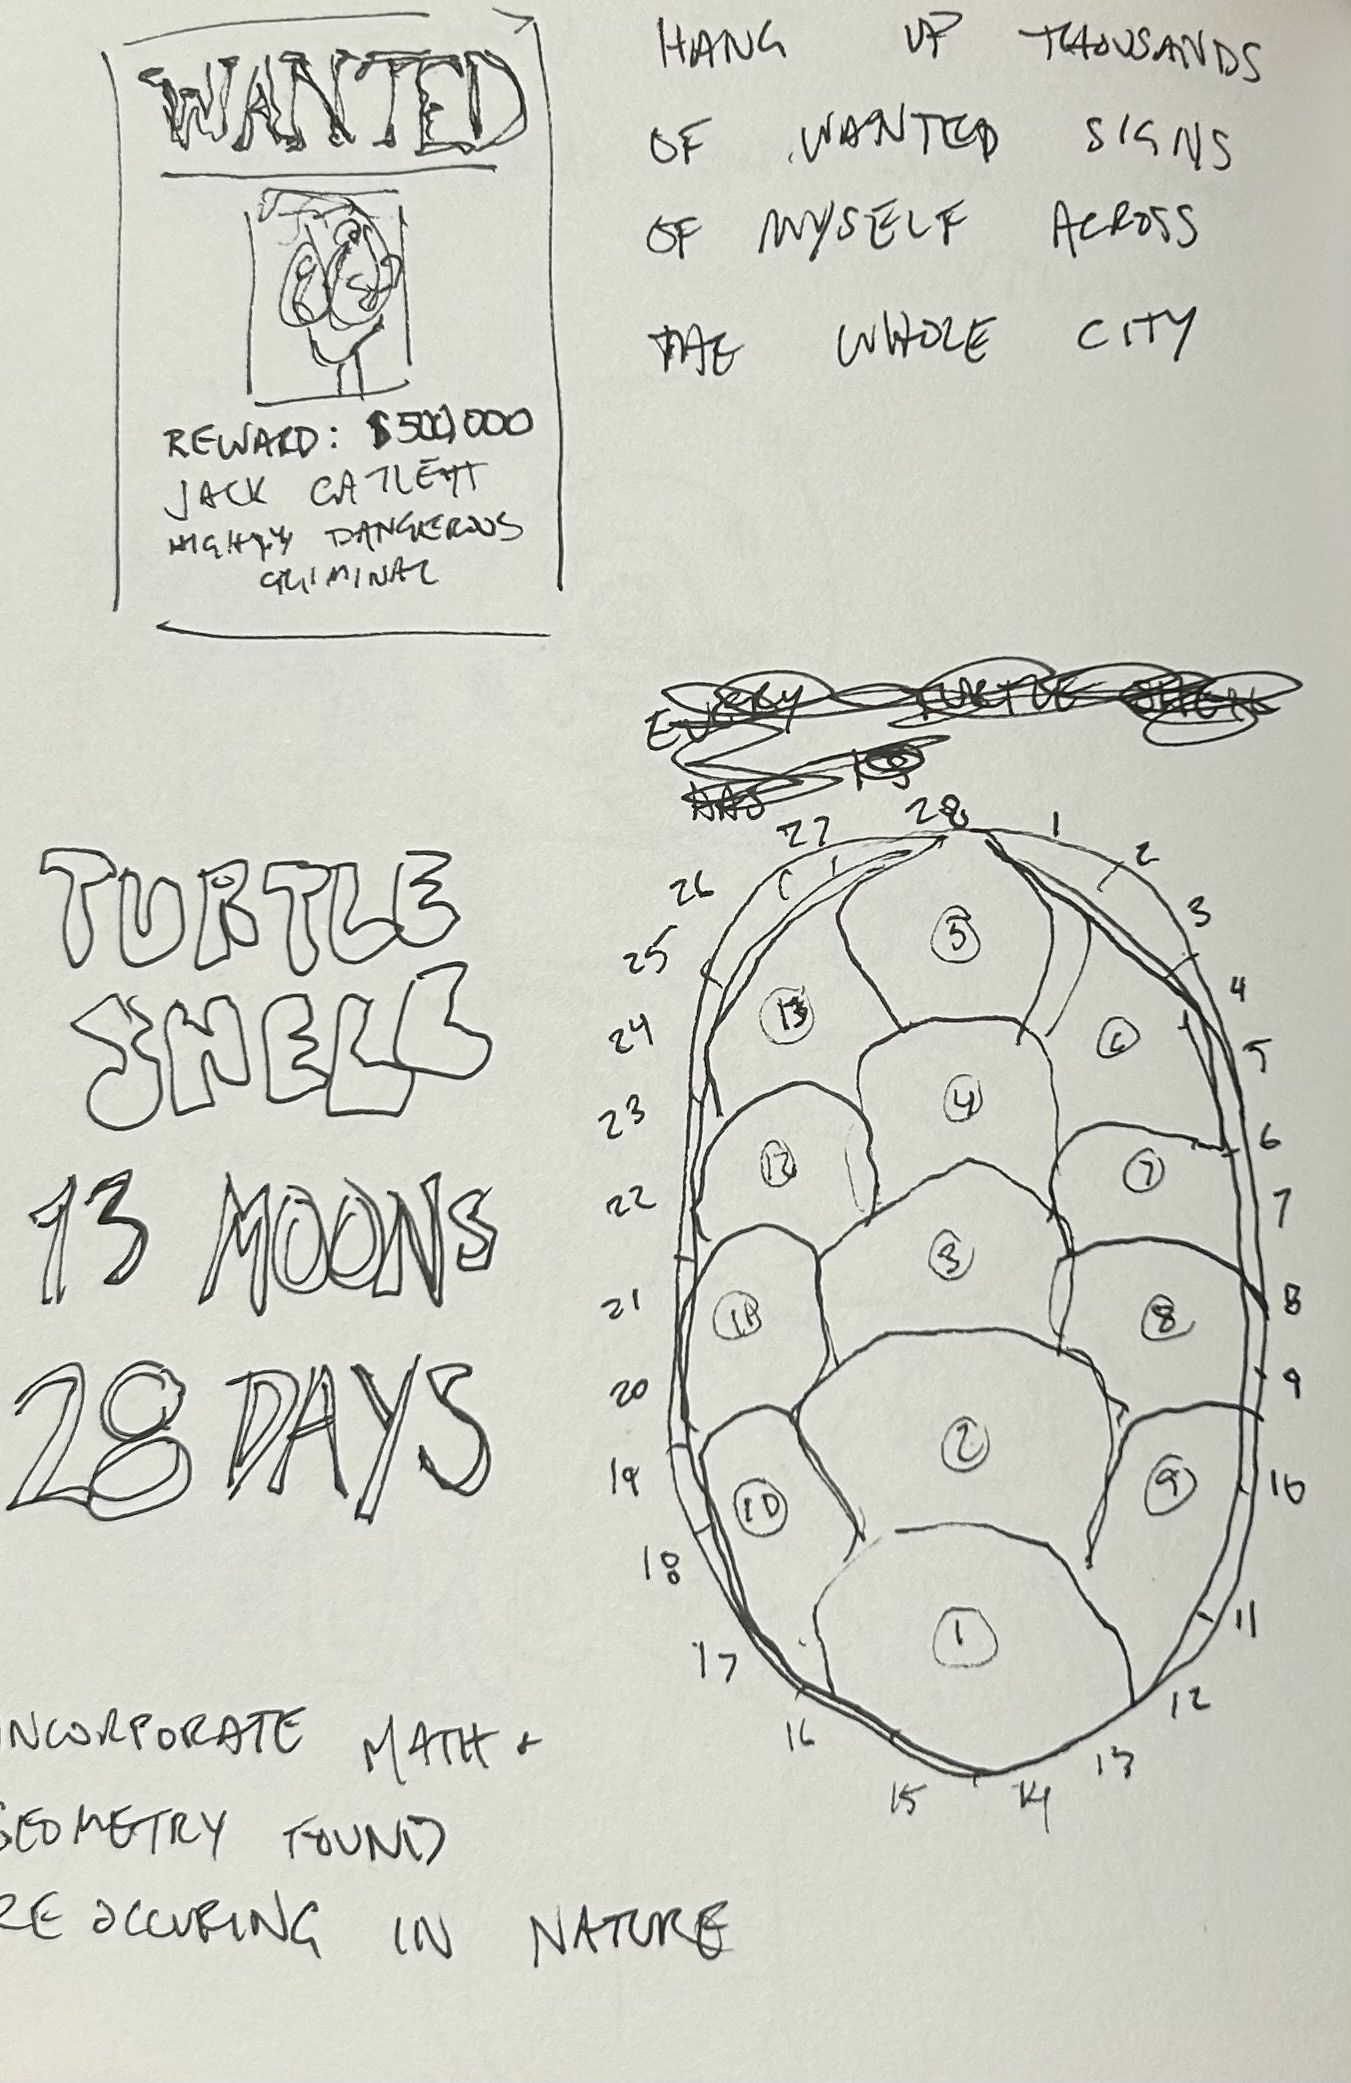 WANTED
REWARD: $500,000
JACK CATLETT
HIGHLY DANGEROUS
CRIMINAL
HANG UP THOUSANDS
OF WANTED SIGNS
OF MYSELF ACROSS
THE WHOLE CITY
EVERY TURTLE SHELL
HAS 13
TURTLE
SHELL
13 MOONS
28 DAYS
28
1
2
3
4
5
6
7
8
9
10
11
12
13
14
15
16
17
18
19
20
21
22
23
24
25
26
27
5
13
6
4
12
7
3
11
8
2
10
9
1
INCORPORATE MATH +
GEOMETRY FOUND
REOCCURING IN NATURE